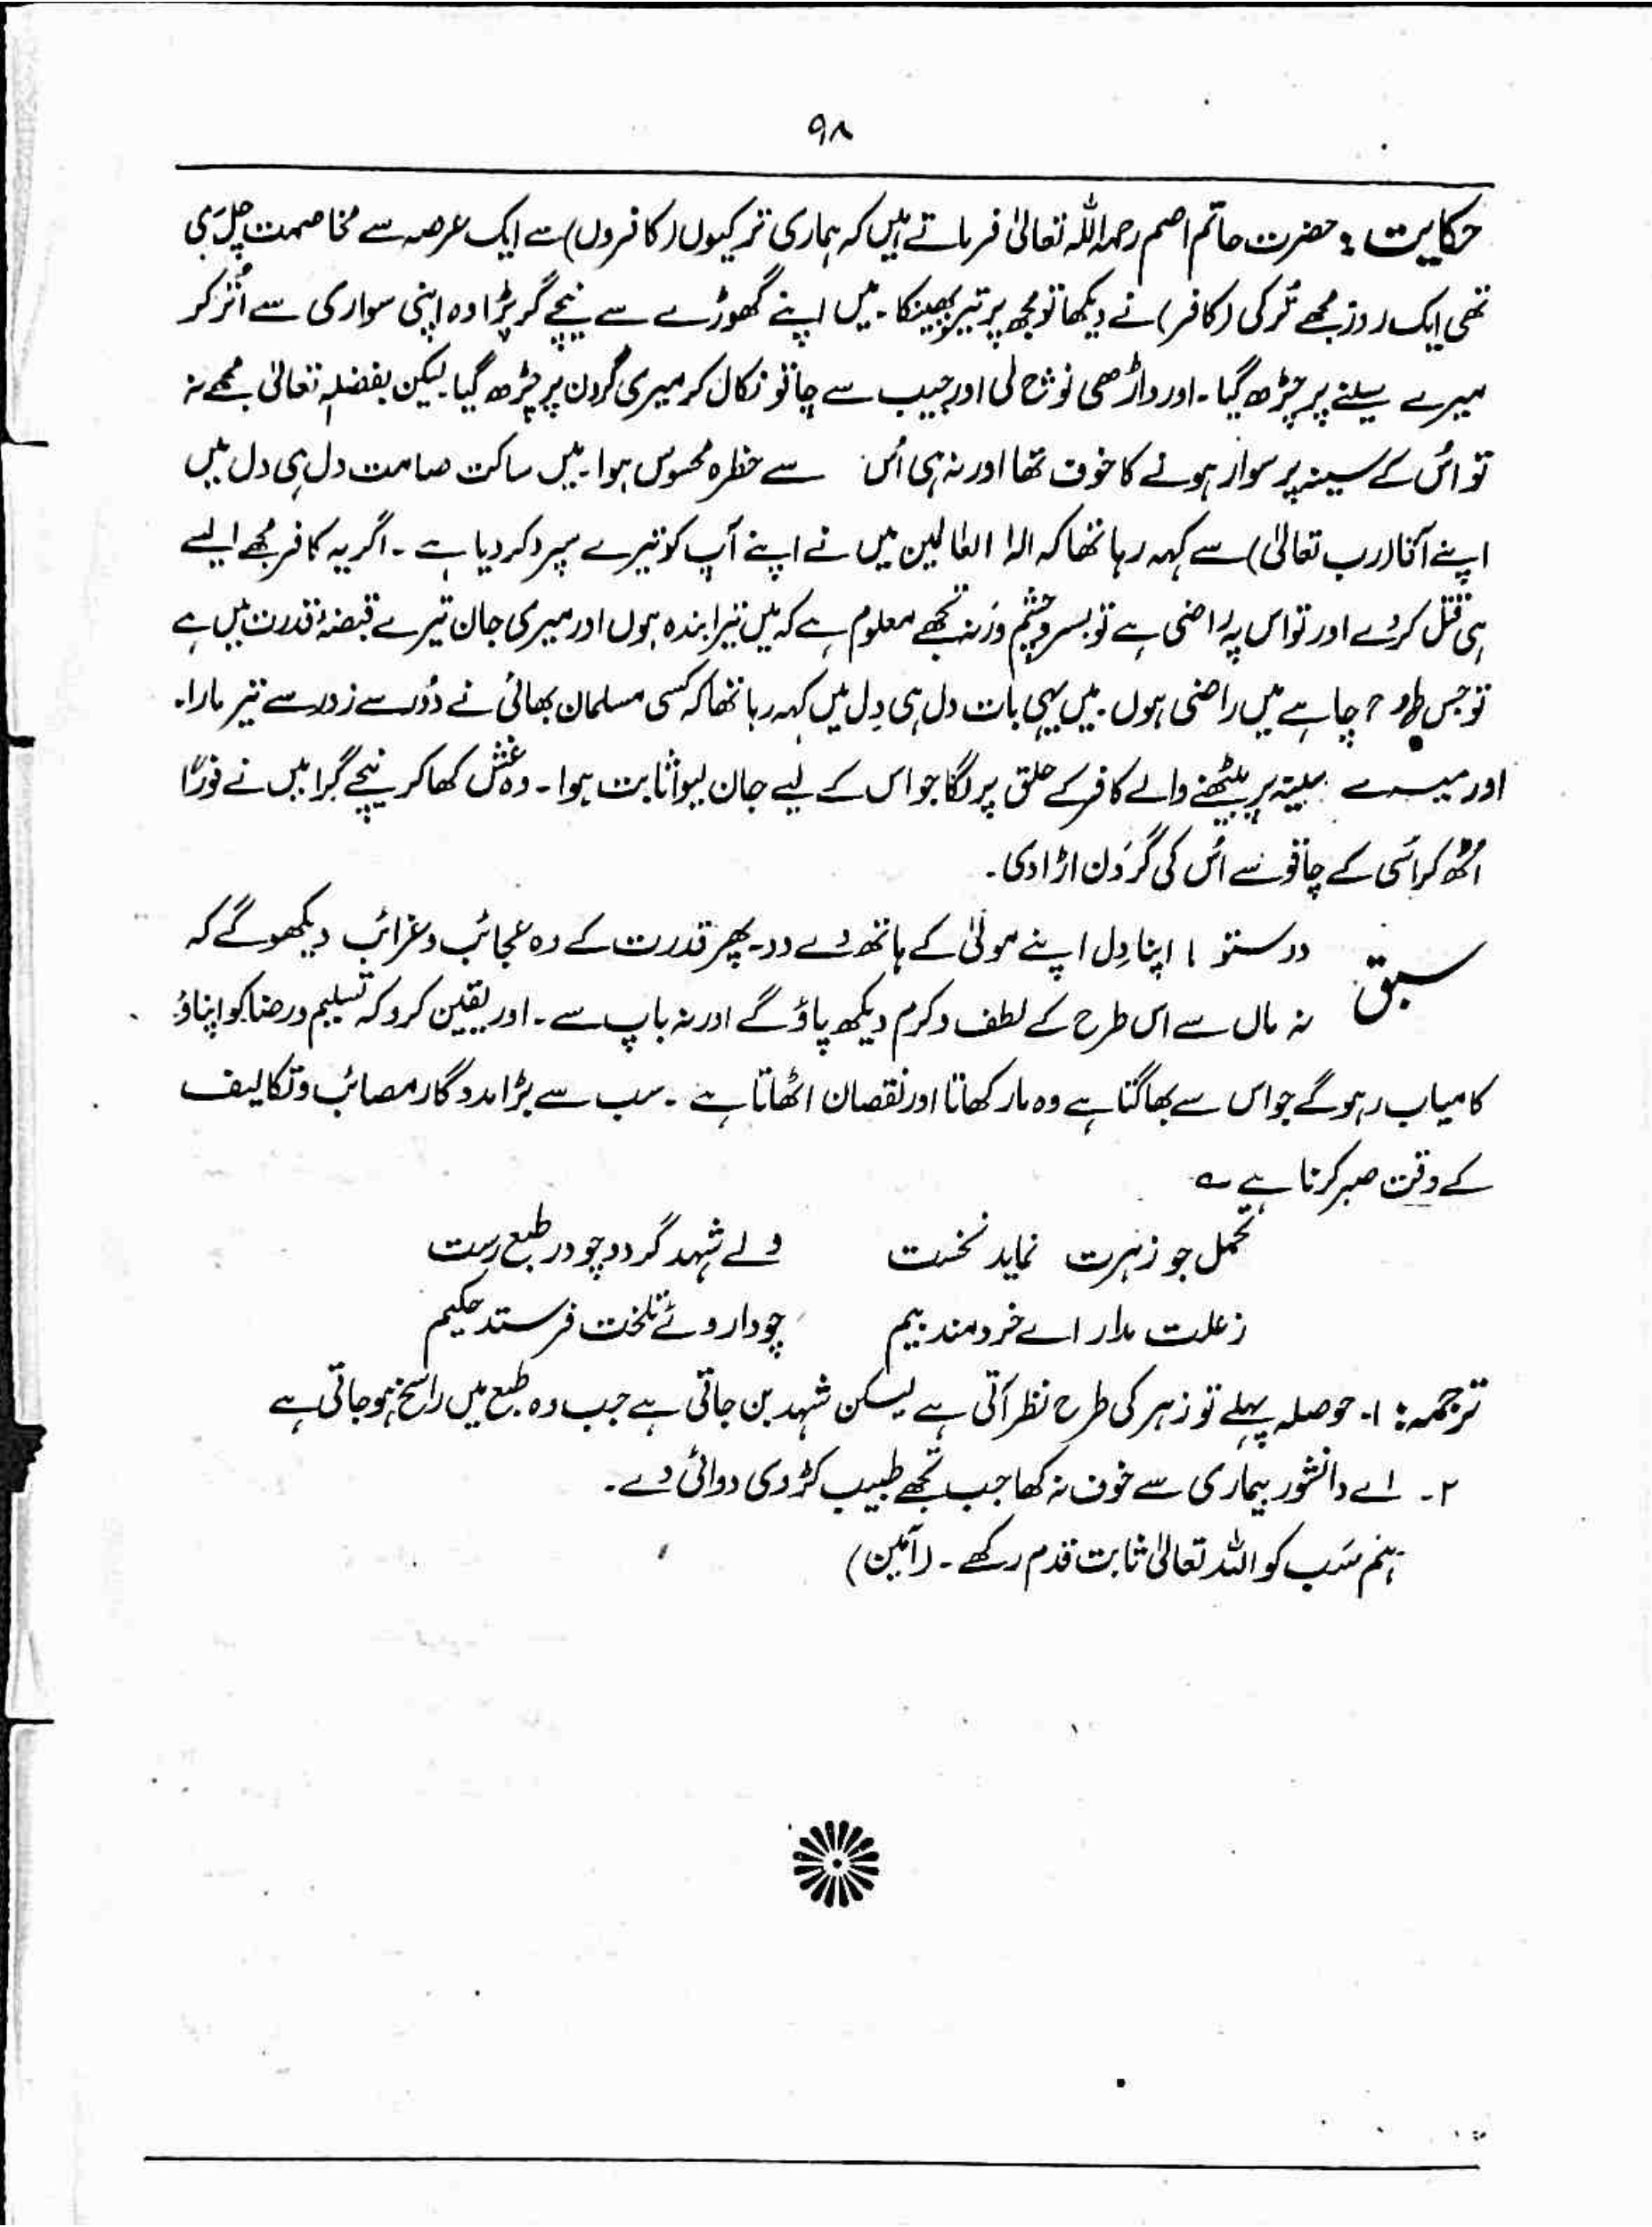 ۹۸
حکایت : حضرت حاتم اصم رحمہ اللہ تعالیٰ فرماتے ہیں کہ ہماری ترکیوں (کافروں) سے ایک عرصہ سے مخاصمت چل رہی
تھی ایک روز مجھے تُرکی (کافر) نے دیکھا تو مجھ پر تیر پھینکا ۔ میں اپنے گھوڑے سے نیچے گر پڑا وہ اپنی سواری سے اُتر کر
میرے سینے پر چڑھ گیا ۔ اور داڑھی نوثح لی اور جیب سے چاقو نکال کر میری گردن پر چڑھ گیا لیکن بفضلہٖ تعالیٰ مجھے نہ
تو اُس کے سینہ پر سوار ہونے کا خوف تھا اور نہ ہی اُس سے خطرہ محسوس ہوا ۔ میں ساکت صامت دل ہی دل میں
اپنے آقا (رب تعالیٰ) سے کہہ رہا تھا کہ الہٰ العالمین میں نے اپنے آپ کو تیرے سپرد کر دیا ہے ۔ اگر یہ کافر مجھے ایسے
ہی قتل کر دے اور تو اس پہ راضی ہے تو بسر و چشم ورنہ تجھے معلوم ہے کہ میں تیرا بندہ ہوں اور میری جان تیرے قبضۂ قدرت میں ہے
تو جس طرح چاہے میں راضی ہوں ۔ میں یہی بات دل ہی دِل میں کہہ رہا تھا کہ کسی مسلمان بھائی نے دُور سے زور سے تیر مارا ۔
اور میرے سینہ پر بیٹھنے والے کافر کے حلق پر لگا جو اس کے لیے جان لیوا ثابت ہوا ۔ وہ غش کھا کر نیچے گرا میں نے فوراً
اُٹھ کر اسُی کے چاقو سے اُس کی گردَن اڑا دی ۔
سبق دوستو ! اپنا دِل اپنے مولیٰ کے ہاتھ دے دو ۔ پھر قدرت کے وہ عجائب و غرائب دیکھو گے کہ
نہ ماں سے اس طرح کے لطف و کرم دیکھ پاؤ گے اور نہ باپ سے ۔ اور یقین کرو کہ تسلیم و رضا کو اپناؤ
کامیاب رہو گے جو اس سے بھاگتا ہے وہ مار کھاتا اور نقصان اٹھاتا ہے ۔ سب سے بڑا مددگار مصائب و تکالیف
کے وقت صبر کرنا ہے ؎
تحمل جو زہرت نماید نخست ولے شہد گردد چو در طبع رست
ز علت مدار اے خردمند بیم چو داروئے تلخت فرستد حکیم
ترجمہ : ۱۔ حوصلہ پہلے تو زہر کی طرح نظر آتی ہے لیکن شہد بن جاتی ہے جب وہ طبع میں راسخ ہو جاتی ہے
۲۔ اے دانشور بیماری سے خوف نہ کھا جب تجھے طبیب کڑوی دوائی دے ۔
ہم سَب کو اللہ تعالیٰ ثابت قدم رکھے ۔ (آمین)